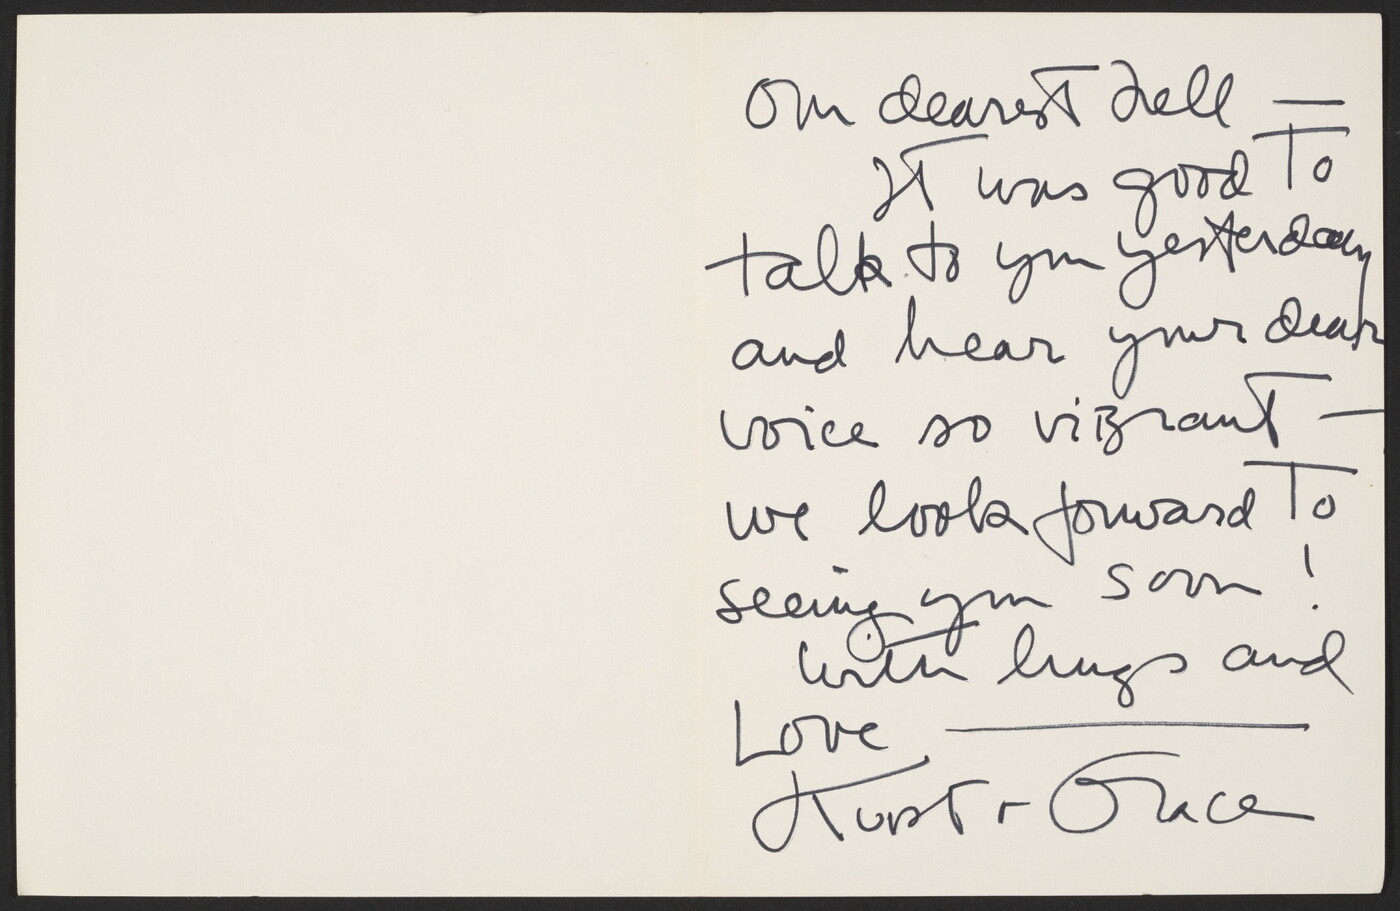 Our dearest Nell —
It was good To
talk to you yesterday
and hear your dear
voice so vibrant —
we look forward To
seeing you soon!
with hugs and
Love —
Kurt + Grace